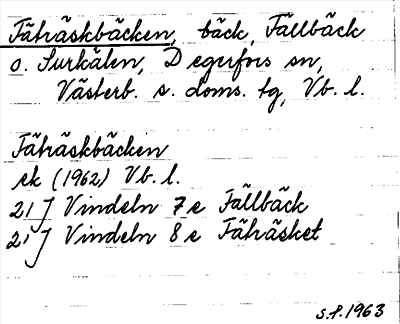 Fäträskbäcken, bäck, Fällbäck
o. Surkälen, Degerfors sn,
Västerb. s. doms. tg, Vb. l.
Fäträskbäcken
ek (1962) Vb. l.
21 J Vindeln 7e Fällbäck
21 J Vindeln 8e Fäträsket
S.P. 1963